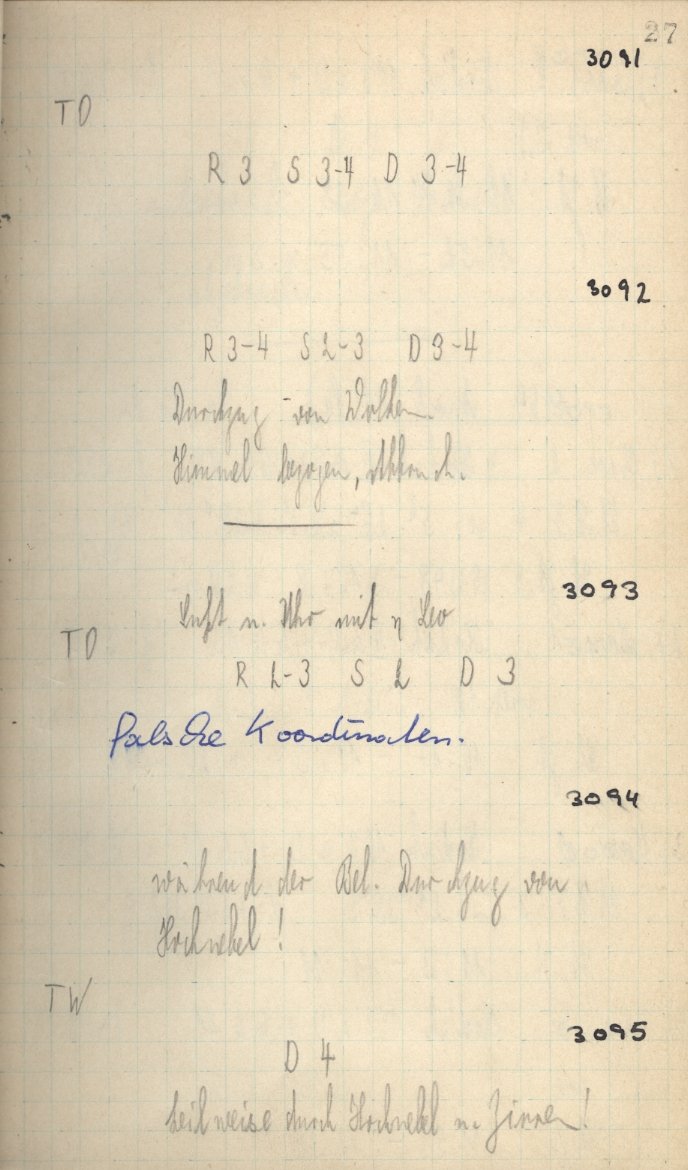 27
3091
TD
R 3 S 3-4 D 3-4
3092
R 3-4 S 2-3 D 3-4
Durchzug von Wolken.
Himmel bezogen, Abbruch.
3093
Luft u. Uhr mit η Leo
TD
R 2-3 S 2 D 3
falsche Koordinaten.
3094
während der Bel. Durchzug von
Hochnebel!
TW
3095
D 4
teilweise durch Hochnebel u. Zirren!